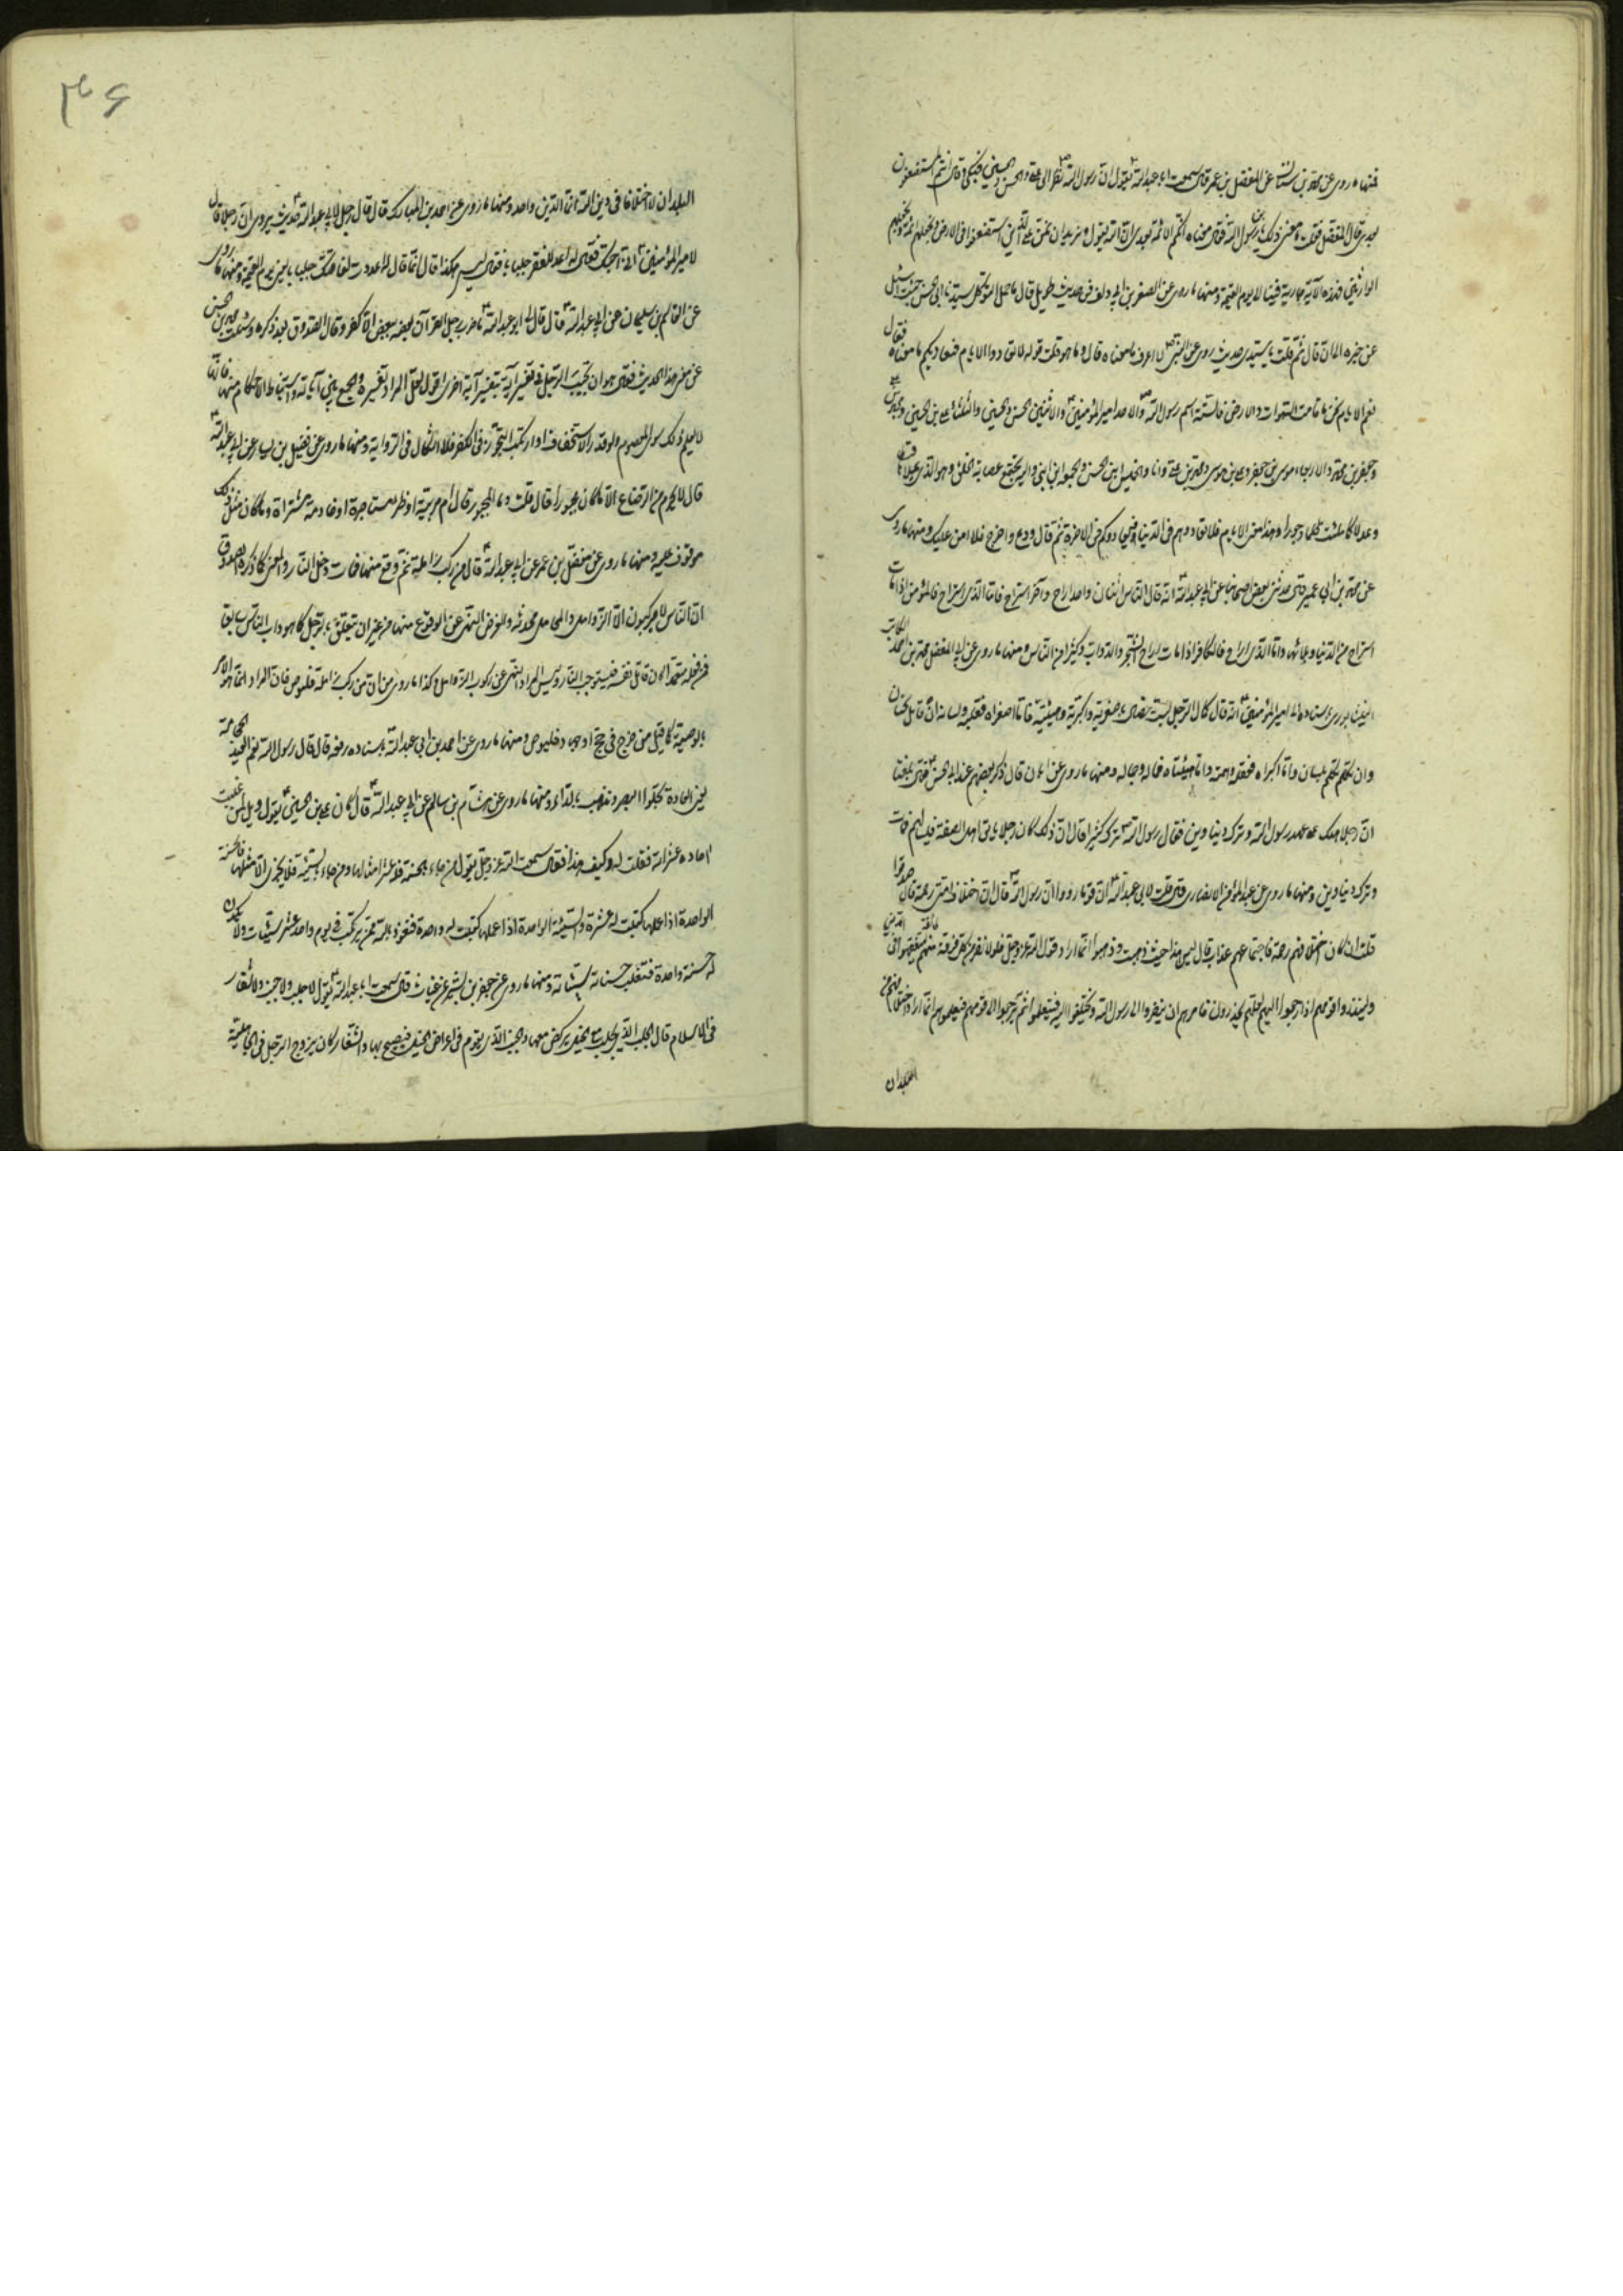 فمنها ما روى عن محمد بن سنان عن المفضل بن عمر قال سمعت ابا عبد الله ع يقول ان رسول الله ص نظر الى على والحسن والحسين فبكى وقال انتم المستضعفون
بعدى قال المفضل فقلت ما معنى ذلك يا بن رسول الله فقال معناه انكم الائمة بعدى ان الله يقول ونريد ان نمن على الذين استضعفوا فى الارض ونجعلهم ائمة ونجعلهم
الوارثين فهذه الآية جارية فينا الى يوم القيمة ومنها ما روى عن الصقر بن ابى دلف فى حديث طويل قال لما حمل المتوكل سيدنا ابى الحسن جئت اسئل
عن خبره الى ان قال ثم قلت يا سيدى حديث روى عن النبى ص لا اعرف ما معناه قال وما هو قلت قوله لا تعادوا الايام فتعاديكم ما معناه فقال
نعم الايام نحن ما قامت السموات والارض فالسبت اسم رسول الله ص والاحد امير المؤمنين ع والاثنين الحسن والحسين والثلثاء على بن الحسين ومحمد بن على
وجعفر بن محمد والاربعاء موسى بن جعفر وعلى بن موسى ومحمد بن على وانا والخميس ابنى الحسن والجمعة ابن ابنى واليه يجتمع عصابة الحق وهو الذى يملأها قسطا
وعدلا كما ملئت ظلما وجورا وهذا معنى الايام فلا تعادوهم فى الدنيا فيعادوكم فى الاخرة ثم قال ودع واخرج فلا امن عليك ومنها ما روى
عن محمد بن ابى عمير قال حدثنى بعض اصحابنا عن ابى عبد الله ع انه قال الناس اثنان واحد اراح وآخر استراح فاما الذى استراح فالمؤمن اذا مات
استراح من الدنيا وبلائها واما الذى اراح فالكافر اذا مات اراح الشجر والدواب وكثيرا من الناس ومنها ما روى عن ابى المفضل محمد بن احمد الكاتب
النيشابورى باسناده الى امير المؤمنين ع انه قال كمال الرجل بست خصال باصغريه واكبريه وهيئتيه فاما اصغراه فقلبه ولسانه ان قاتل قاتل بجنان
وان تكلم تكلم بلسان واما اكبراه فعقله وهمته واما هيئتاه فماله وجماله ومنها ما روى عن ابان قال ذكر بعضهم عند ابى الحسن ع فقال بلغنا
ان رجلا هلك على عهد رسول الله وترك دينارين فقال رسول الله ص ترك كثيرا قال ان ذلك كان رجلا ياتى اهل الصفة فيسألهم فمات
وترك دينارين ومنها ما روى عن عبد المؤمن الانصارى قال قلت لابى عبد الله ع ان قوما رووا ان رسول الله ص قال ان اختلاف امتى رحمة فقال صدقوا
قلت ان كان اختلافهم رحمة فاجتماعهم عذاب قال ليس هذا حيث ذهبت وذهبوا انما اراد قول الله عز وجل فلولا نفر من كل فرقة منهم طائفة ليتفقهوا فى الدين
ولينذروا قومهم اذا رجعوا اليهم لعلهم يحذرون فامرهم ان ينفروا الى رسول الله ويختلفوا اليه فيتعلموا ثم يرجعوا الى قومهم فيعلموهم انما اراد اختلافهم من
البلدان
۳۶
البلدان لا اختلافا فى دين الله انما الدين واحد ومنها ما روى عن احمد بن المبارك قال قال رجل لابى عبد الله ع حديث يروى ان رجلا قال
لامير المؤمنين ع انى احبك فقال له اعد للفقر جلبابا فقال ليس هكذا قال انما قال له اعددت لفاقتك جلبابا يعنى يوم القيمة ومنها ما روى
عن القاسم بن سليمان عن ابى عبد الله ع قال قال لى ابو عبد الله ع ما ضرب رجل القرآن بعضه ببعض الا كفر وقال الصدوق بعد ذكره وسئلت محمد بن الحسن
عن معنى هذا الحديث فقال هو ان تجيب الرجل فى تفسير آية بتفسير آية اخرى اقول لعل المراد تفسيره والجمع بين آياته واستنباط الاحكام منها فانه
لا يعلم ذلك سوى المعصوم ولو قدر الاستخفاف او ارتكب التجوز فى الكفر فلا اشكال فى الرواية ومنها ما روى عن فضيل بن يسار عن ابى عبد الله ع
قال لا يحرم من الرضاع الا ما كان مجبورا قال قلت وما المجبور قال ام مربية او ظئر مستاجرة او خادمة مشتراة وما كان مثل ذلك
موقوف عليه ومنها ما روى عن مفضل بن عمر عن ابى عبد الله ع قال من ركب زاملة ثم وقع منها فمات دخل النار والمعنى كما ذكره الصدوق
ان الناس كانوا يركبون الا الزوامل والمحامل محدثة والغرض النهى عن الوقوع منها من غير ان يتعلق بالرحل كما هو داب الناس سابقا
فمن فعله متعمدا كان قاتل نفسه فيستوجب النار وليس المراد النهى عن ركوب الزوامل وكذا ما روى من ان من ركب زاملة فليوص فان المراد انما هو الامر
بالوصية كما قيل من خرج فى حج او جهاد فليوص ومنها ما روى عن احمد بن ابى عبد الله باسناده رفعه قال قال رسول الله نعم العيد الحجامة
يعنى العادة تجلوا البصر وتذهب بالداء ومنها ما روى عن هشام بن سالم عن ابى عبد الله ع قال كان على بن الحسين ع يقول ويل لمن غلبت
احاده عشراته فقلت له وكيف هذا فقال سمعت الله عز وجل يقول من جاء بالحسنة فله عشر امثالها ومن جاء بالسيئة فلا يجزى الا مثلها فالحسنة
الواحدة اذا عملها كتبت له عشرة والسيئة الواحدة اذا عملها كتبت له واحدة فنعوذ بالله ممن يرتكب فى يوم واحد عشر سيئات ولا يكون
له حسنة واحدة فتغلب حسناته سيئاته ومنها ما روى عن جعفر بن بشير عن غياث قال سمعت ابا عبد الله ع يقول لا جلب ولا جنب ولا شغار
فى الاسلام قال الجلب الذى يجلب مع الخيل يركض معها والجنب الذى يقوم فى اعراض الخيل فيصيح بها والشغار كان يزوج الرجل فى الجاهلية